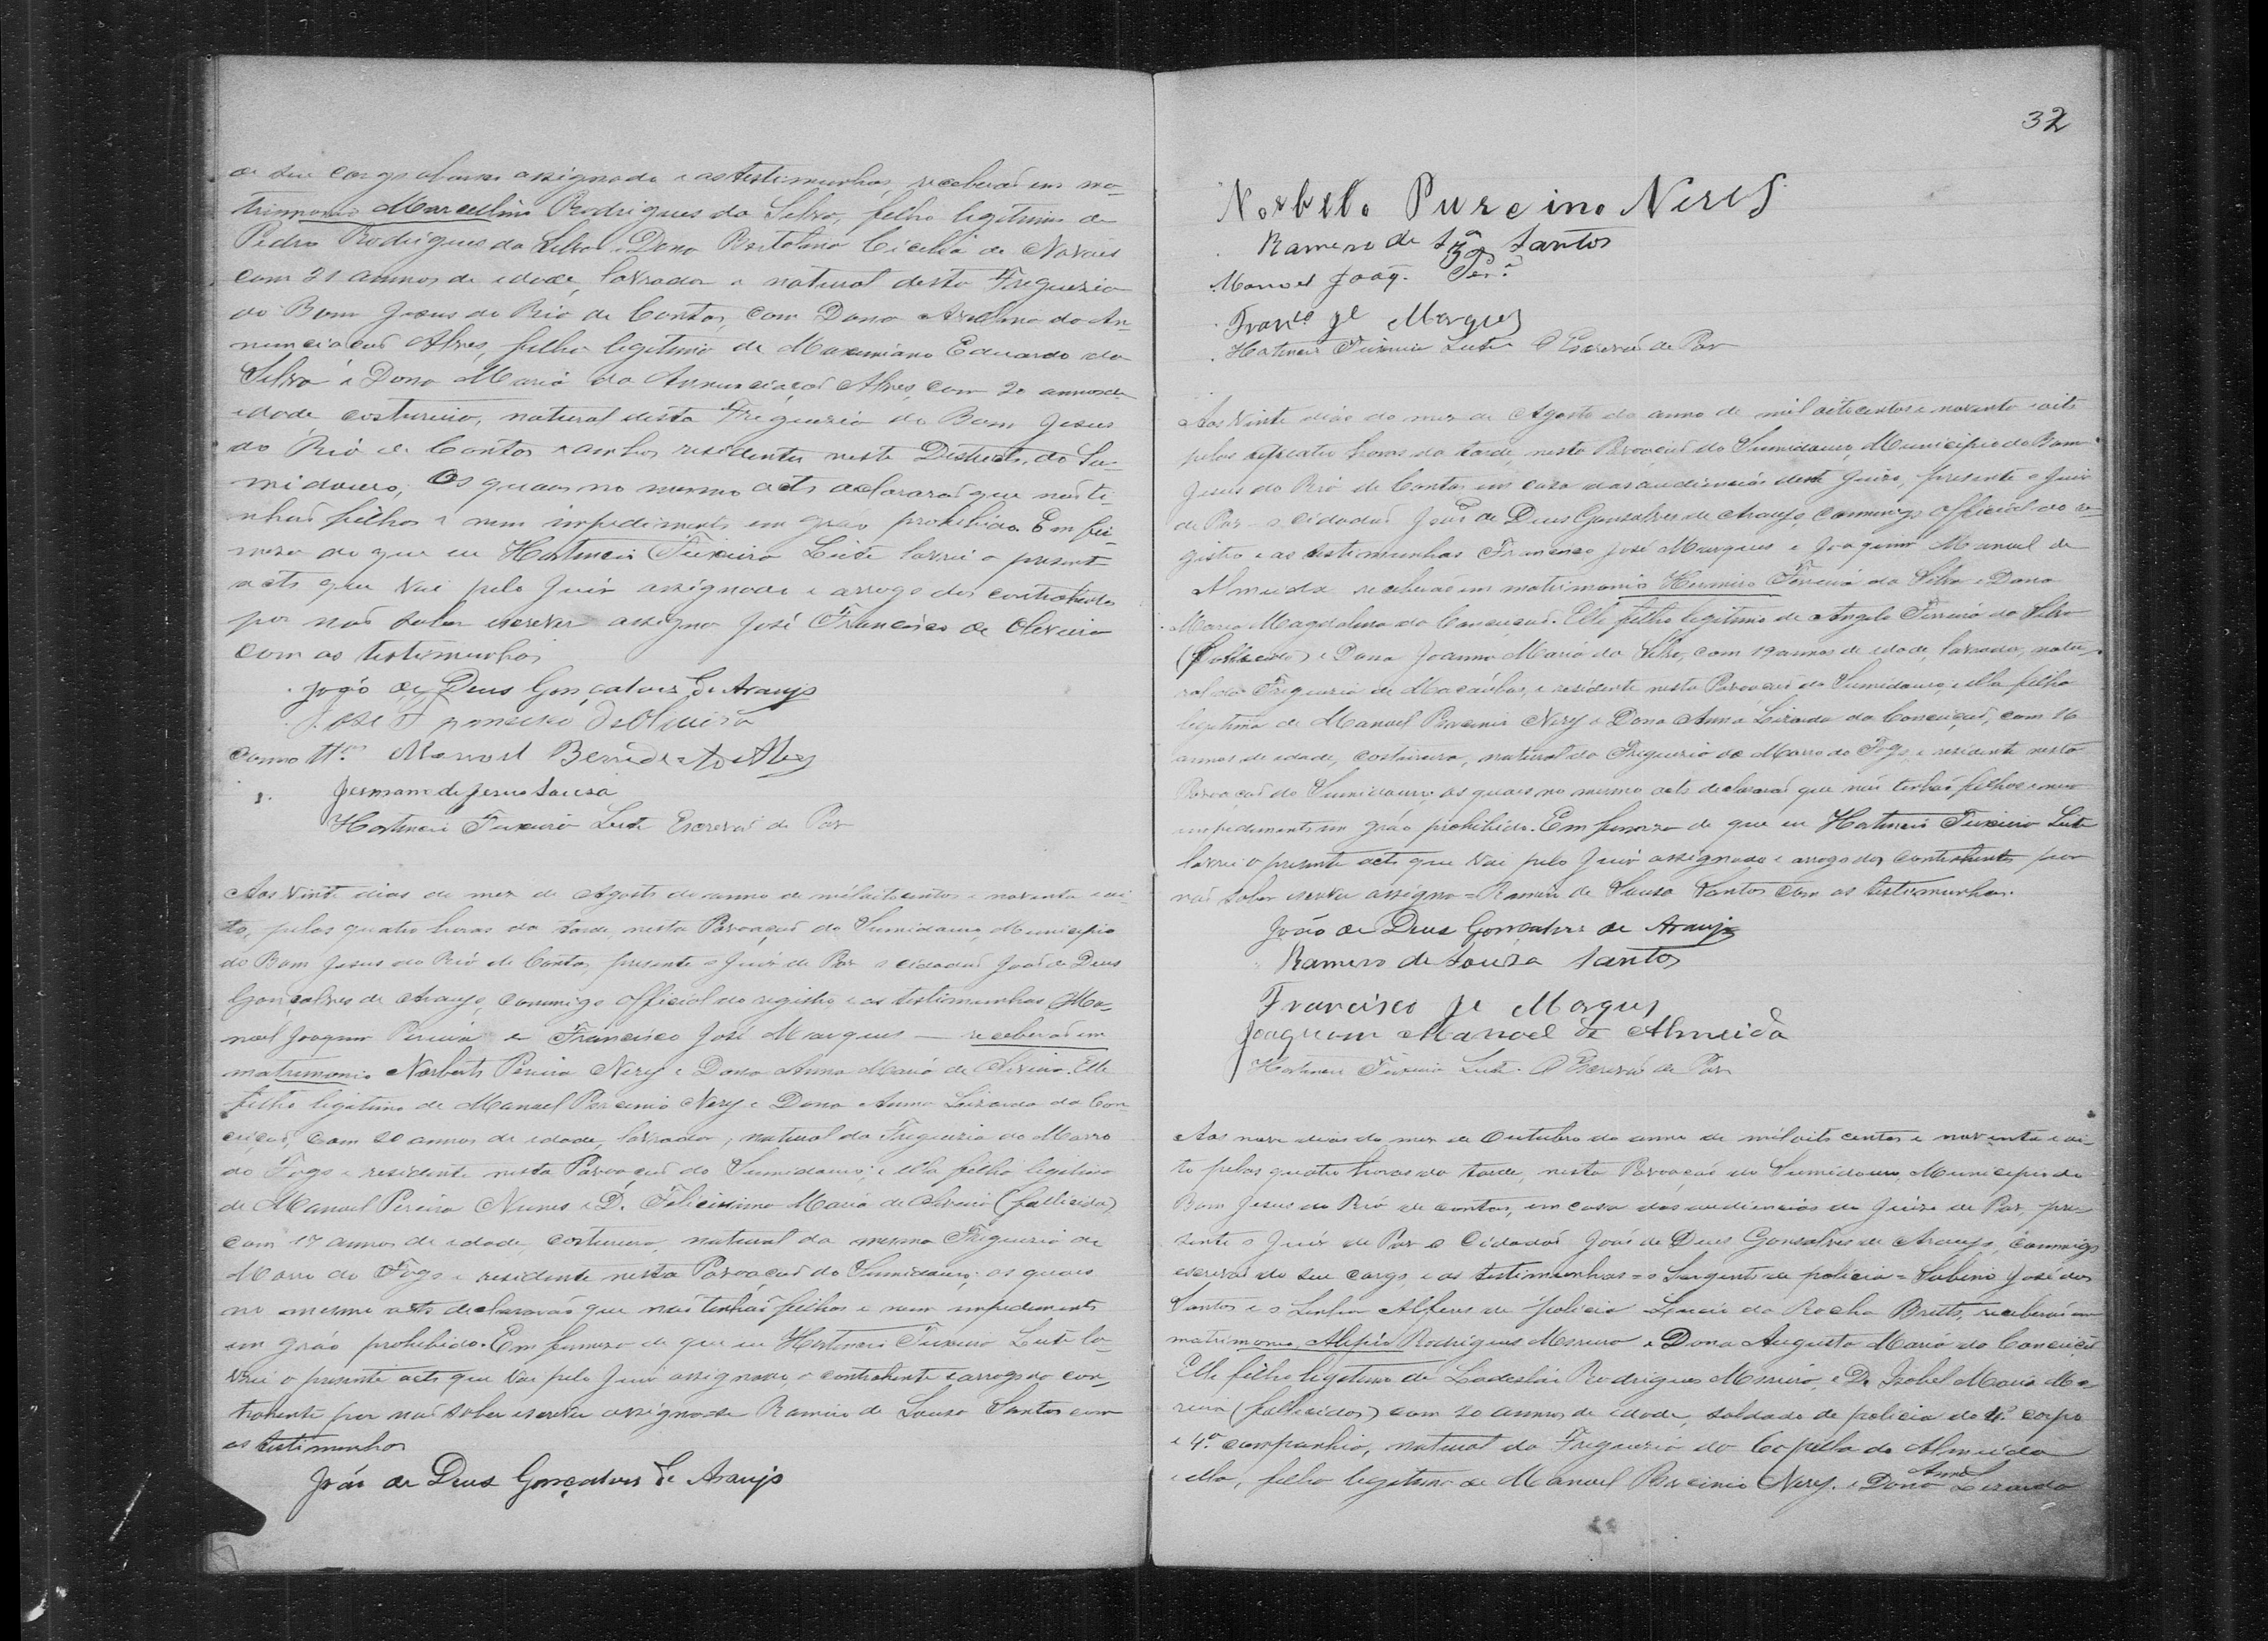 de seu cargo abaixo assignado e as testimunhas, receberaõ em ma-
trimonio Marcellino Rodrigues da Silva, filho legitimo de
Pedro Rodrigues da Silva e Dona Bertolina Cicilia de Novaes
com 21 annos de idade, lavrador e natural desta Freguezia
do Bom Jesus do Rio de Contas, com Dona da An-
nunciacaõ Alves, filha legitima de Maximiano Eduardo da
Silva e Dona Maria da Annunciaçaõ Alves, com 20 annos de
idade, costureira, natural desta Freguezia do Bom Jesus
do Rio de Contas e ambos residentes neste Destricto do Su-
midouro; Os quaes no mesmo acto declararaõ que naõ ti-
nhaõ filhos e nem impedimento em gráo prohibido. Em fir-
meza do que eu Hortencio Teixeira Leite lavrei o presente
acto que vai pelo Juiz assignado e arrogo dos contrahentes
por naõ saber escrever assigna José Francisco de Oliveira
com as testimunhas
João de Deus Gonçalves de Araujo
José Francisco de Oliveira
Como tt.as Manoel Benedicto Alves
Germano de Jesus Sousa
Hortencio Teixeira Leite Escrivaõ de Paz
Aos vinte dias do mez de Agosto do anno de mil oitocentos e noventa e oi-
to, pelas quatro horas da tarde, nesta Povoaçaõ do Sumidouro, Municipio
do Bom Jesus do Rio de Contas, presente o Juiz de Paz o cidadaõ Joaõ de Deus
Gonçalves de Araujo, commigo official do registro e as testimunhas Ma-
noel Joaquim Pereira e Francisco José Marques — receberaõ em
matrimonio Norberto Pereira Nery e Dona Anna Maria de Oliveira. Elle
filho legitimo de Manoel Porcinio Nery e Dona Anna Lizarda da Con-
ceiçaõ, com 20 annos de idade, lavrador, natural da Freguezia do Morro
do Fogo e residente nesta Povoaçaõ do Sumidouro; e ella filha legitima
de Manoel Pereira Nunes e D. Felicissima Maria de Oliveira (fallecida)
com 17 annos de idade, costureira, natural da mesma Freguezia de
Morro do Fogo e residente nesta Povoaçaõ do Sumidouro; os quaes
no mesmo acto declararaõ que naõ tinhaõ filhos e nem impedimento
em gráo prohibido. Em firmeza do que eu Hortencio Teixeira Leite la-
vrei o presente acto que vai pelo Juiz assignado, o contrahente e arrogo da con-
trahente por naõ saber escrever assigna-se Ramiro de Souza Santos com
as testimunhas
João de Deus Gonçalves de Araujo
32
Norbelo Purcino Neres
Ramero de Sza Santos
Manoel Joaq. Per.a
Franco Je Marques
Hortencio Teixeira Leite O Escrivaõ de Paz
Aos Vinte dias do mez de Agosto do anno de mil oitocentos e noventa e oito
pelas quatro horas da tarde, nesta Povoaçaõ do Sumidouro, Municipio do Bom
Jesus do Rio de Contas em casa das audiencias deste Juizo, presente o Juiz
de Paz o cidadaõ Joaõ de Deus Gonsalves de Araujo, commigo official do re-
gistro e as testimunhas Francisco José Marques e Joaquim Manoel de
Almeida receberaõ em matrimonio Herminio Ferreira da Silva e Dona
Maria Magdalena da Conceiçaõ. Elle filho legitimo de Angelo Ferreira da Silva
(fallecido) e Dona Joanna Maria da Silva, com 19 annos de idade, lavrador, natu-
ral da Freguezia de Macaúbas, e residente nesta Povoaçaõ do Sumidouro, e ella filha
legitima de Manoel Porcinio Nery e Dona Anna Lizarda da Conceiçaõ, com 16
annos de idade, costureira, natural da Freguezia do Morro do Fogo e residente nesta
Povoaçaõ do Sumidouro; os quaes no mesmo acto declararaõ que naõ tinhaõ filhos e nem
impedimento em gráo prohibido. Em firmeza do que eu Hortencio Teixeira Leite
lavrei o presente acto que vai pelo Juiz assignado e arrogo dos contrahentes por
naõ saber escrever assigna = Ramiro de Souza Santos com as testimunhas.
João de Deus Gonçalves de Araujo
Ramero de Souza Santos
Francisco Je Marques
Joaquim Manoel de Almeida
Hortencio Teixeira Leite. O Escrivaõ de Paz
Aos nove dias do mez de Outubro do anno de mil oito centos e noventa e oi-
to pelas quatro horas da tarde, nesta Povoaçaõ do Sumidouro, Municipio do
Bom Jesus do Rio de contas, em casa das audiencias do Juizo de Paz, pre-
sente o Juiz de Paz o Cidadaõ Joaõ de Deus Gonsalves de Araujo, commigo
escrivaõ do seu cargo, e as testimunhas = o Sargento de policia = Sabino José dos
Santos e o Senhor Alferes de policia Lucio da Rocha Britto, receberaõ em
matrimonio, Alipio Rodrigues Moreira e Dona Augusta Maria da Conceiçaõ
Elle filho legitimo de Ladeslao Rodrigues Moreira, e D. Izabel Maria Mo-
reira (fallecidos) com 20 annos de idade, soldado de policia do 4.º corpo
e 4.ª companhia, natural da Freguezia da Capella do Almeida
e ella, filha legitima de Manoel Porcinio Nery. e Dona Anna Lizarda